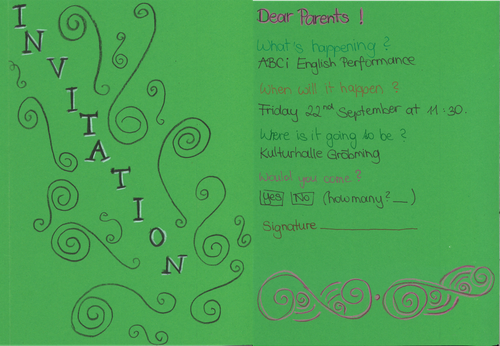 INVITATION
Dear Parents !
What's happening ?
ABCi English Performance
When will it happen ?
Friday 22nd September at 11:30.
Were is it going to be ?
Kulturhalle Gröbming
Would you come ?
Yes No (how many? __)
Signature ____________